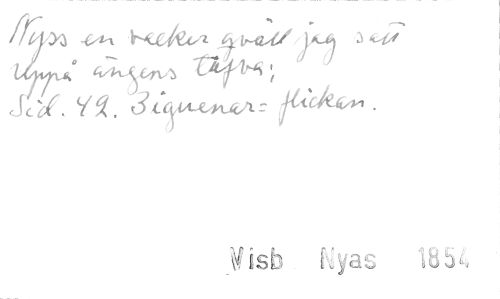 Nyss en vacker qväll jag satt
uppå ängens tufva;
Sid. 42. Ziguenar=flickan.
Visb Nyas 1854